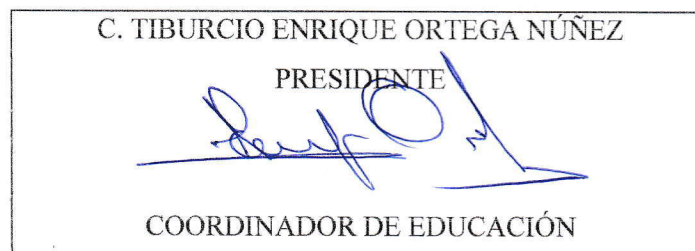 C. TIBURCIO ENRIQUE ORTEGA NÚÑEZ
PRESIDENTE
COORDINADOR DE EDUCACIÓN